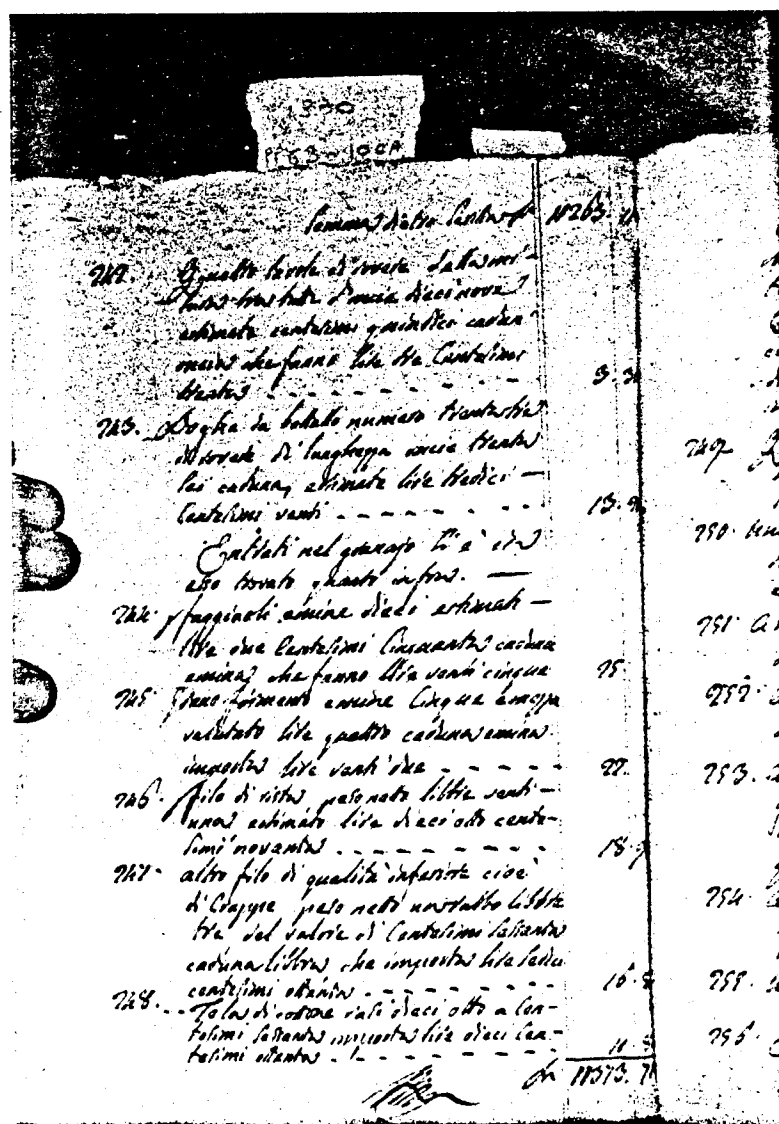 1830
Somma dietro
242. Quattro tavole di rovere della
tutte d'oncia dieci nove
estimate centesimi quindici cadun
oncia che fanno lire tre Centesimi
trenta - - - - - - - 3. 3
243. Doghe da bottallo numero trentatre
di rovere di lunghezza oncie trenta
sei caduna, estimate lire tredici —
Centesimi venti - - - - - 13. 2
Entrati nel granajo si è in
esso trovato quanto infra. —
244. faggiuoli emine dieci estimati —
lire due Centesimi Cinquanta caduna
emina, che fanno lire venti cinque 25
245. formento emine Cinque e mezza
valutato lire quattro caduna emina
importa lire venti due - - - - - 22.
246. filo di rista peso netto libbre venti-
una estimato lire dieci otto cente-
simi novanta - - - - - 18. 9
247. altro filo di qualità inferiore cioè
di peso netto un rubbo libbre
tre del valore di Centesimi sessanta
caduna libbra che importa lire sedici
centesimi ottanta - - - - - 16. 8
248. Tela di cottone rasi dieci otto a Cen-
tesimi sessanta importa lire dieci Cen-
tesimi ottanta - - - - -
11373. 71
249
250
251
252
253.
254.
255.
256